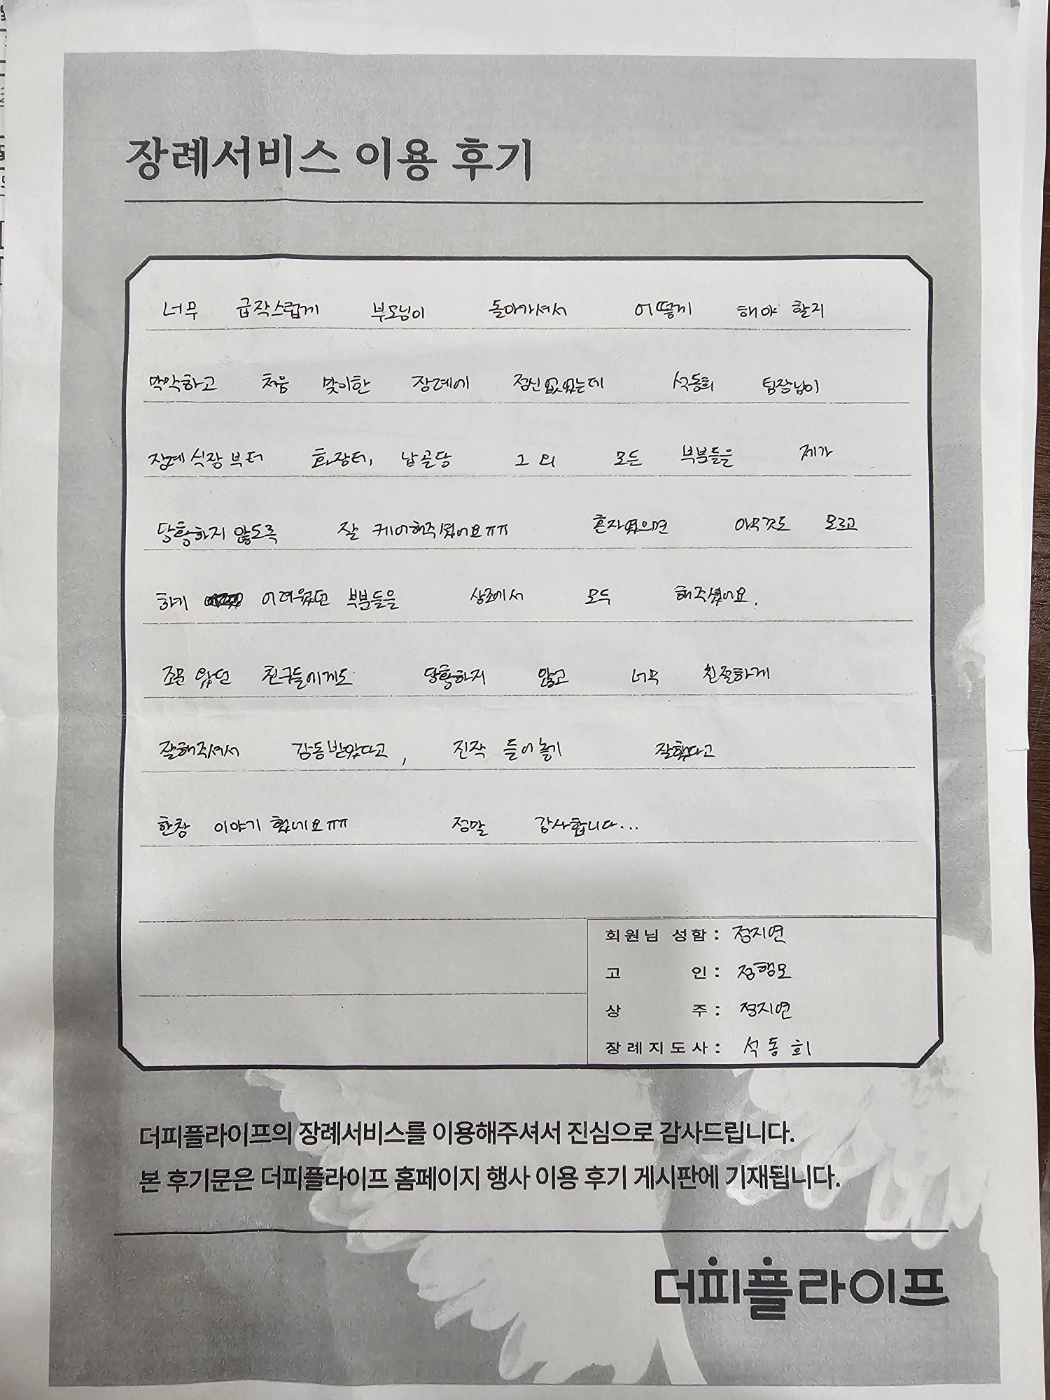 장례서비스 이용 후기
너무 급작스럽게 부모님이 돌아가셔서 어떻게 해야 할지
막막하고 처음 맞이한 장례에 정신없었는데 석동희 팀장님이
장례식장부터 화장터, 납골당 그 외 모든 부분들을 제가
당황하지 않도록 잘 케어해주셨어요ㅠㅠ 혼자였으면 아무것도 모르고
하기 어려웠던 부분들을 상조에서 모두 해주셨어요.
조문 왔던 친구들에게도 당황하지 않고 너무 친절하게
잘해주셔서 감동받았다고, 진작 들어놓기 잘했다고
한창 이야기 했네요ㅠㅠ 정말 감사합니다...
회원님 성함 : 정지연
고 인 : 정행모
상 주 : 정지연
장례지도사 : 석동희
더피플라이프의 장례서비스를 이용해주셔서 진심으로 감사드립니다.
본 후기문은 더피플라이프 홈페이지 행사 이용 후기 게시판에 기재됩니다.
더피플라이프